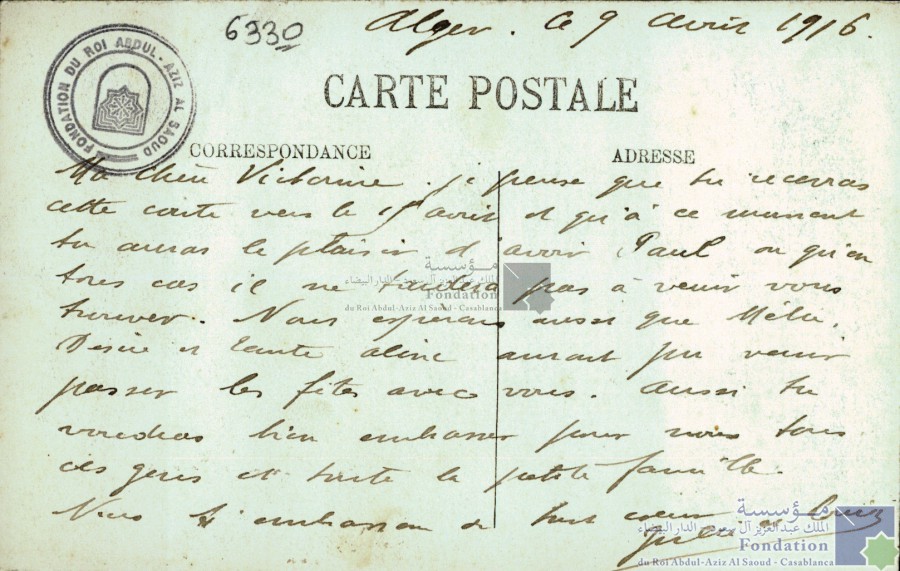 6330
Alger. le 9 avril 1916.
FONDATION DU ROI ABDUL-AZIZ AL SAOUD
CARTE POSTALE
CORRESPONDANCE
ADRESSE
Ma chère Victorine. je pense que tu recevras
cette carte vers le 15 avril et qu'à ce moment
tu auras le plaisir d'avoir Paul ou qu'en
tous cas il ne tardera pas à venir vous
trouver. Nous espérons aussi que
Désiré et tante Aline auront pu venir
passer les fêtes avec vous. Aussi tu
voudras bien embrasser pour nous tous
ces gens et toute la petite famille.
Nous t'embrassons de tout coeur
مؤسسة
الملك عبد العزيز آل سعود الدار البيضاء
Fondation
du Roi Abdul-Aziz Al Saoud - Casablanca
مؤسسة
الملك عبد العزيز آل سعود الدار البيضاء
Fondation
du Roi Abdul-Aziz Al Saoud - Casablanca